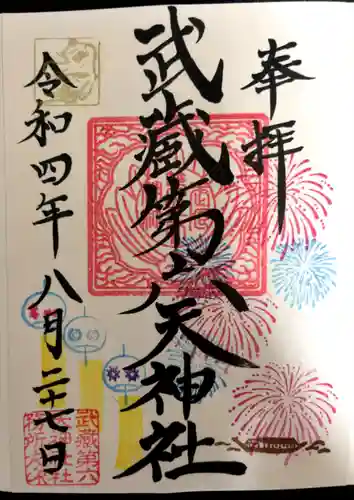 奉拝
武蔵第六天神社
令和四年八月二十七日
武蔵第六